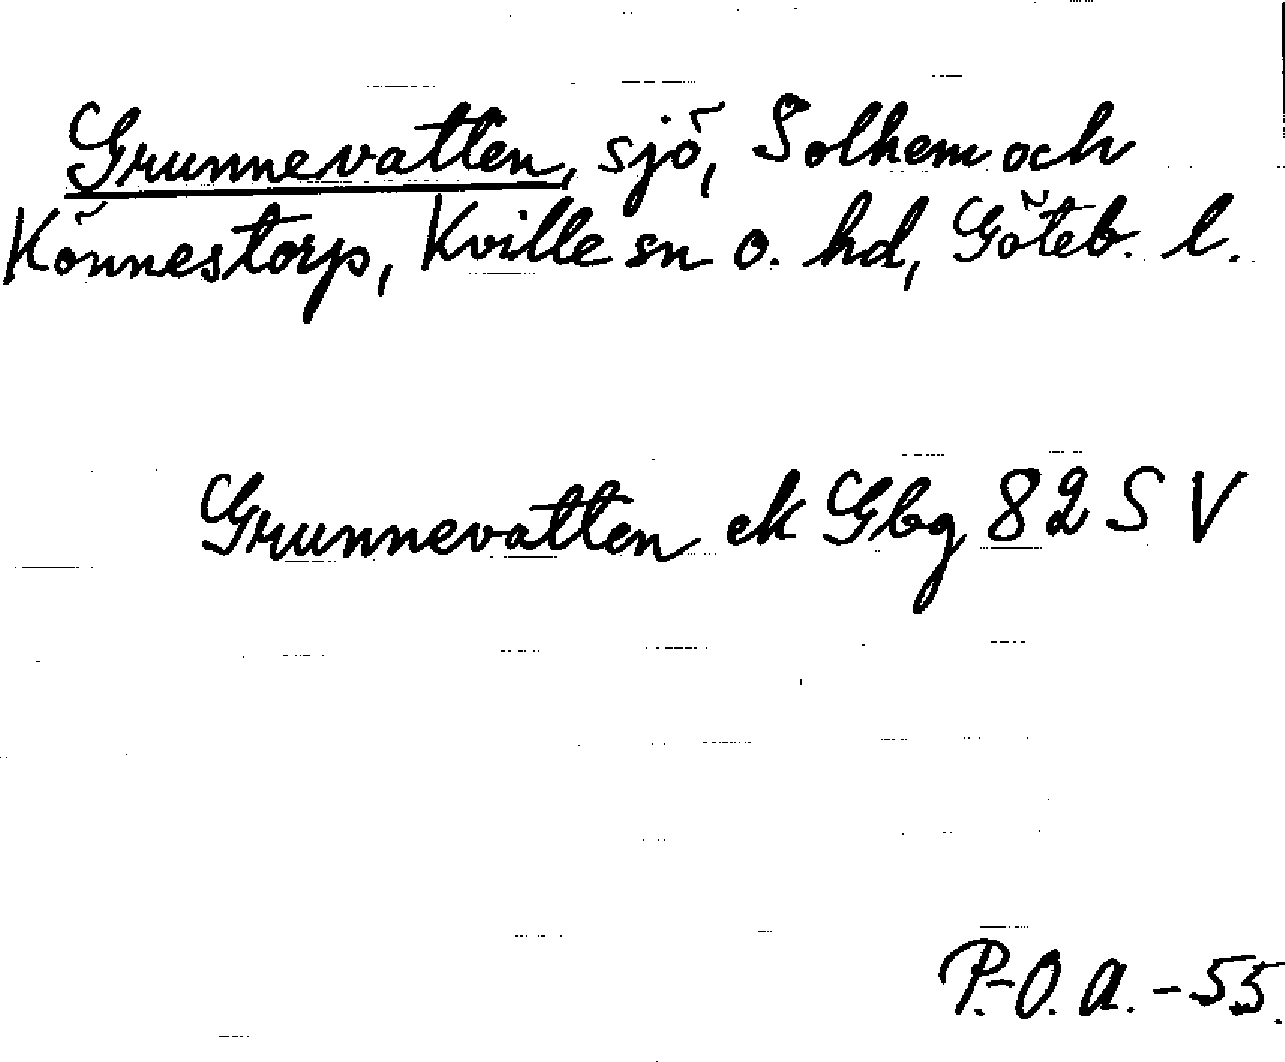 Grunnevatten, sjö, Solhem och
Könnestorp, Kville sn o. hd, Göteb. l.
Grunnevatten ek Gbg 82 SV
P.-O. A. -55.